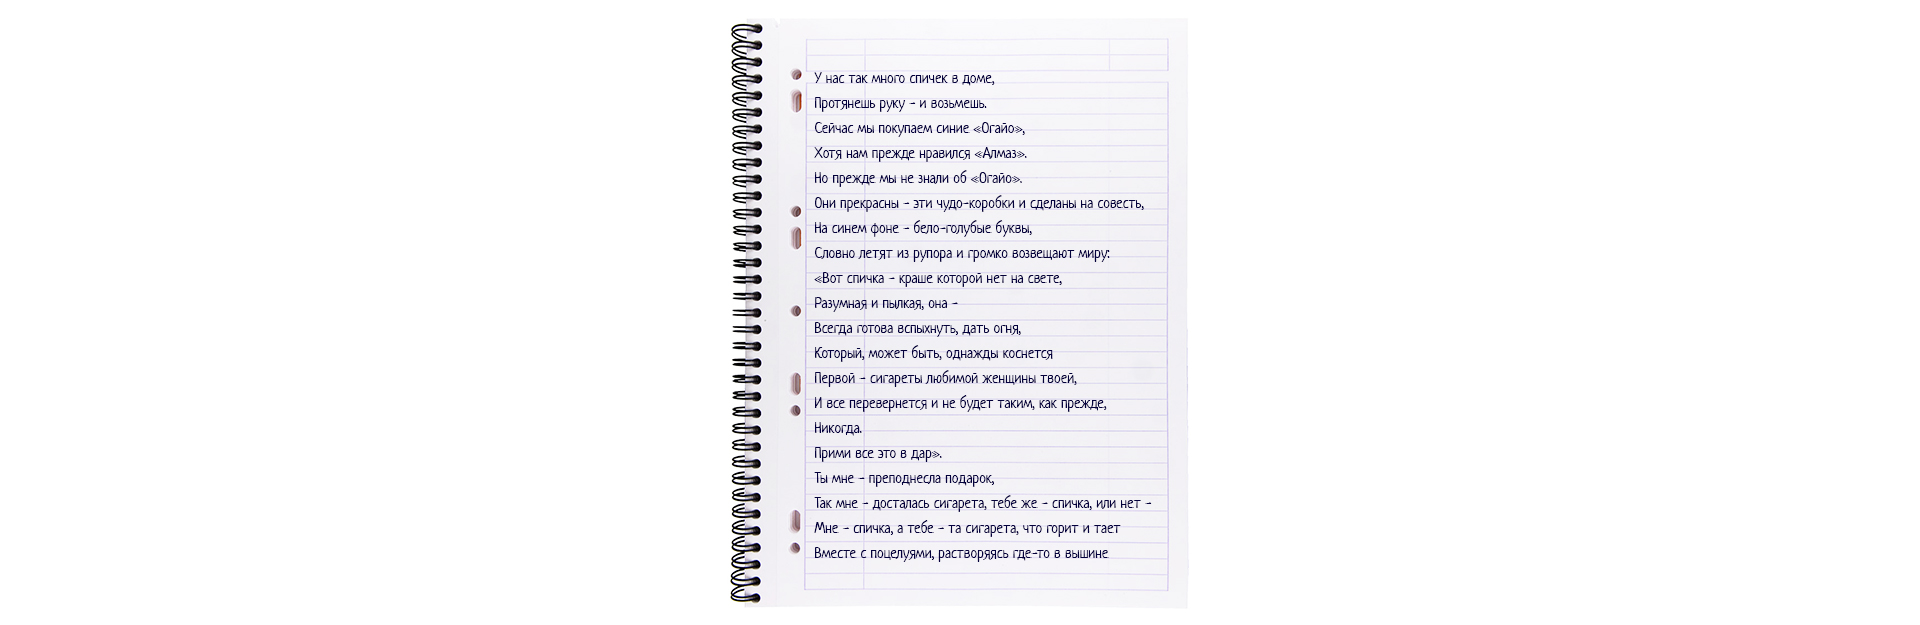 У нас так много спичек в доме,
Протянешь руку - и возьмешь.
Сейчас мы покупаем синие «Огайо»,
Хотя нам прежде нравился «Алмаз».
Но прежде мы не знали об «Огайо».
Они прекрасны - эти чудо-коробки и сделаны на совесть,
На синем фоне - бело-голубые буквы,
Словно летят из рупора и громко возвещают миру:
«Вот спичка - краше которой нет на свете,
Разумная и пылкая, она -
Всегда готова вспыхнуть, дать огня,
Который, может быть, однажды коснется
Первой - сигареты любимой женщины твоей,
И все перевернется и не будет таким, как прежде,
Никогда.
Прими все это в дар».
Ты мне - преподнесла подарок,
Так мне - досталась сигарета, тебе же - спичка, или нет -
Мне - спичка, а тебе - та сигарета, что горит и тает
Вместе с поцелуями, растворяясь где-то в вышине